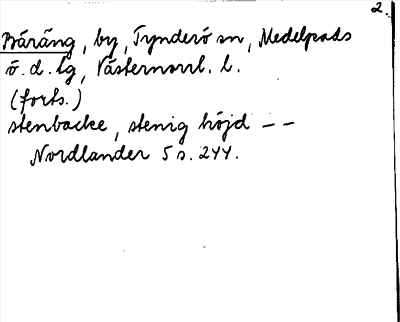 2.
Båräng, by, Tynderö sn, Medelpads
ö. d. lg, Västernorrl. l.
(forts.)
stenbacke, stenig höjd – –
Nordlander 5 s. 244.